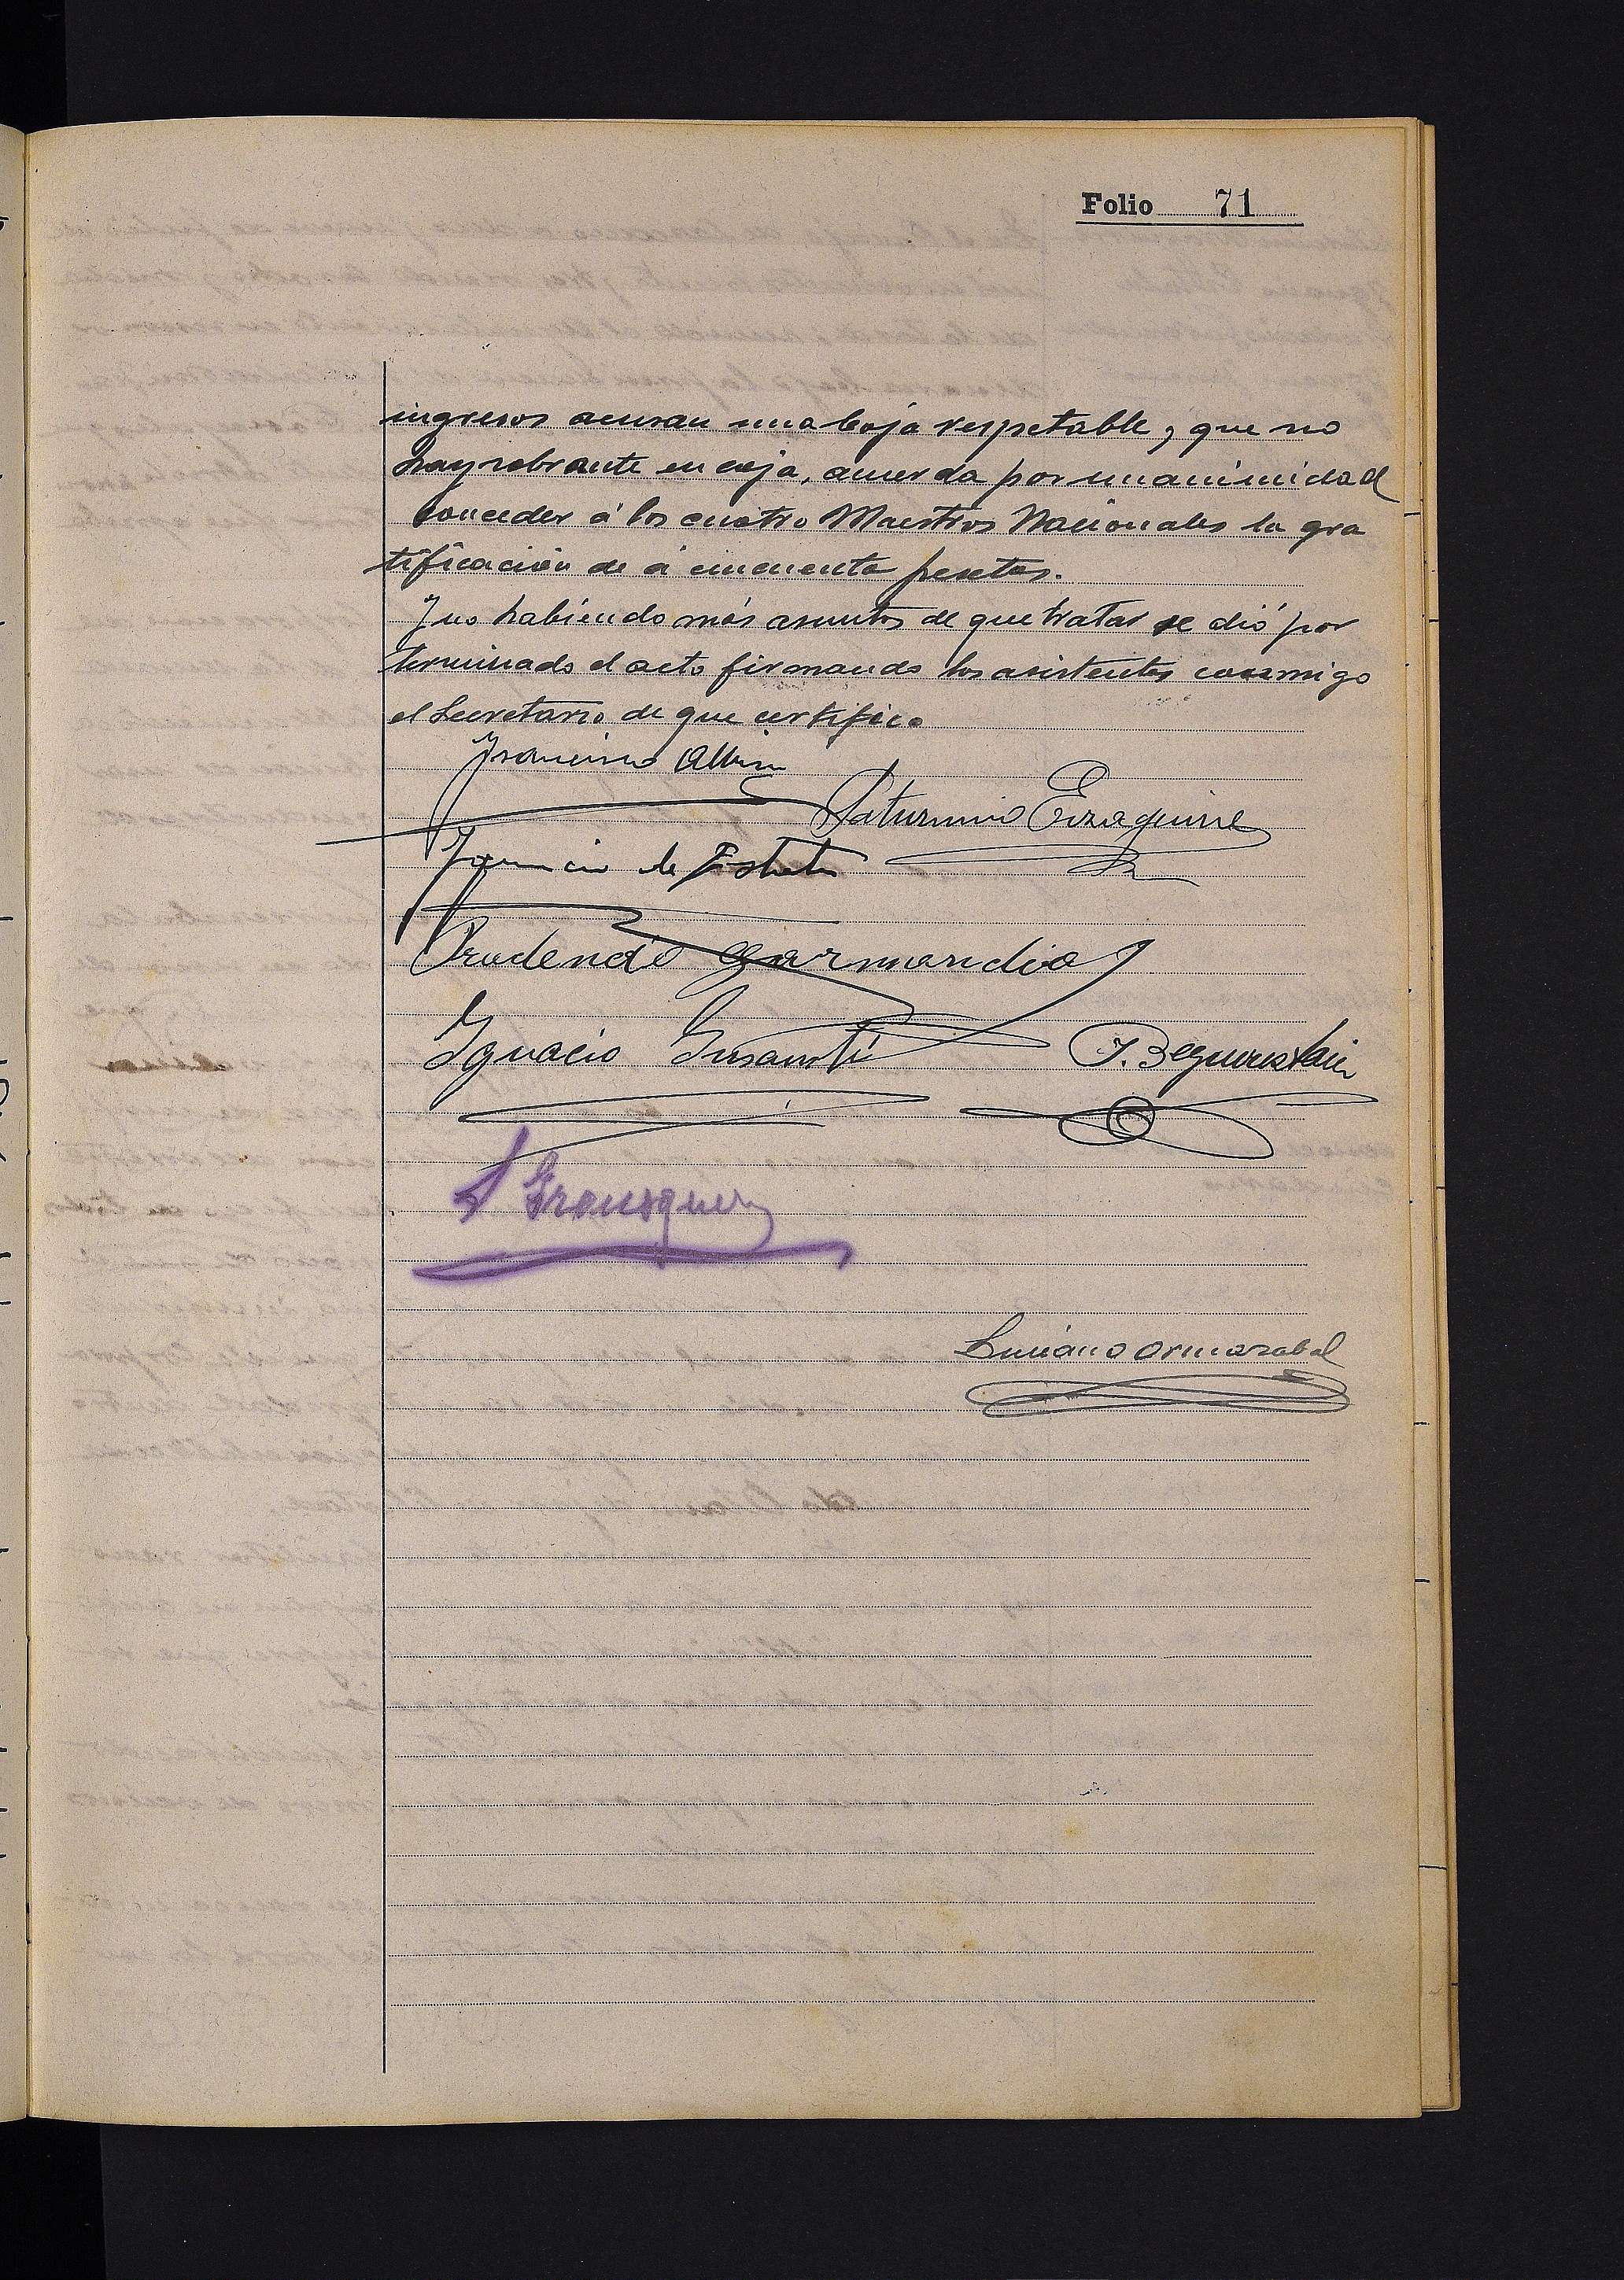 Folio 71
ingresos acusan una baja respetable, y que no
hay sobrante en caja, acuerda por unanimidad
conceder á los cuatro Maestros Nacionales la gra
tificación de á cincuenta pesetas.
Y no habiendo más asuntos de que tratar se dió por
terminado el acto firmando los asistentes conmigo
el Secretario de que certifico
Francisco Albisu
Saturnino Eizaguirre
Ignacio de
Prudencio Garmendia
Ignacio
J. Beguiristain
Luciano Ormazabal